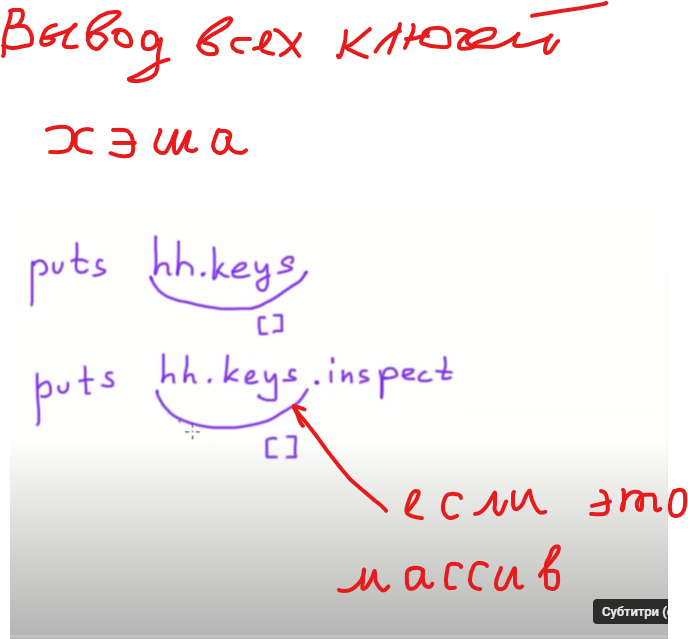 Вывод всех ключей
хэша
puts hh.keys
[]
puts hh.keys.inspect
[]
если это
массив
Субтитри (